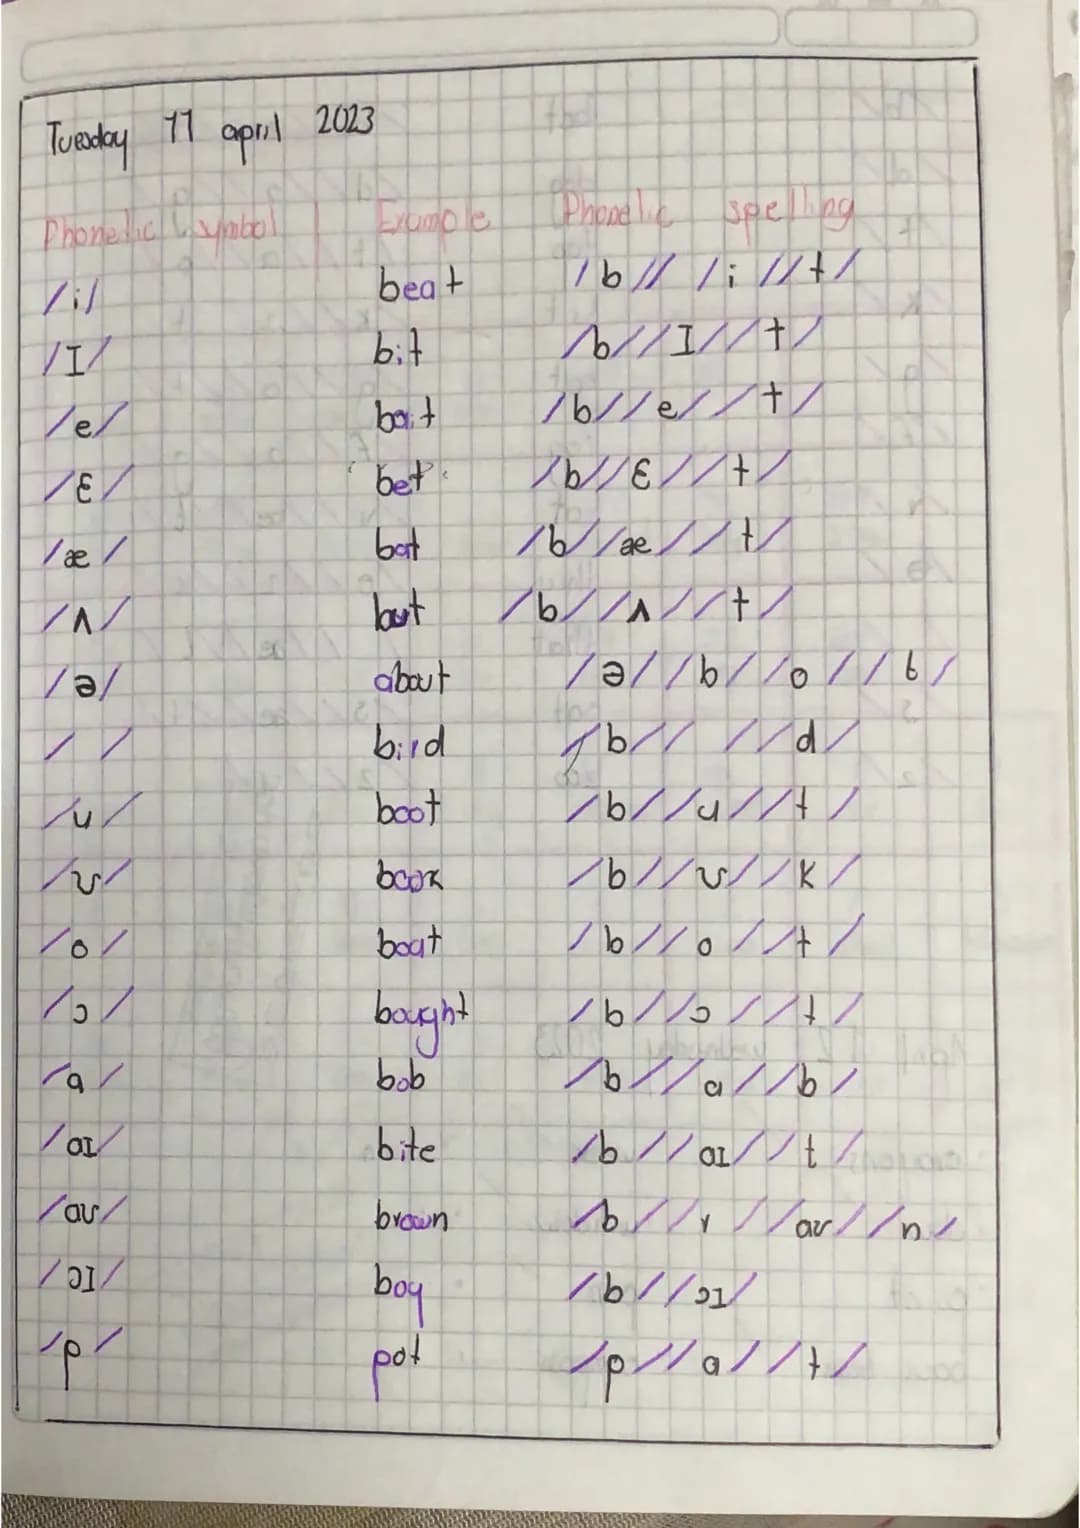 Tuesday 11 april 2023
Phonetic symbol | Example Phonetic spelling
/i/ beat /b// /i//t/
/I/ bit /b//I//t/
/e/ bait /b//e//t/
/ɛ/ bet /b//ɛ//t/
/æ/ bat /b//æ//t/
/ʌ/ but /b//ʌ//t/
/ə/ about /ə//b//o//t/
/ / bird /b// //d/
/u/ boot /b//u//t/
/ʊ/ book /b//ʊ//k/
/o/ boat /b//o//t/
/ɔ/ bought /b//ɔ//t/
/a/ bob /b//a//b/
/aI/ bite /b//aI//t/
/aʊ/ brown /b//r//aʊ//n/
/ɔI/ boy /b//ɔI/
/p/ pot /p//a//t/